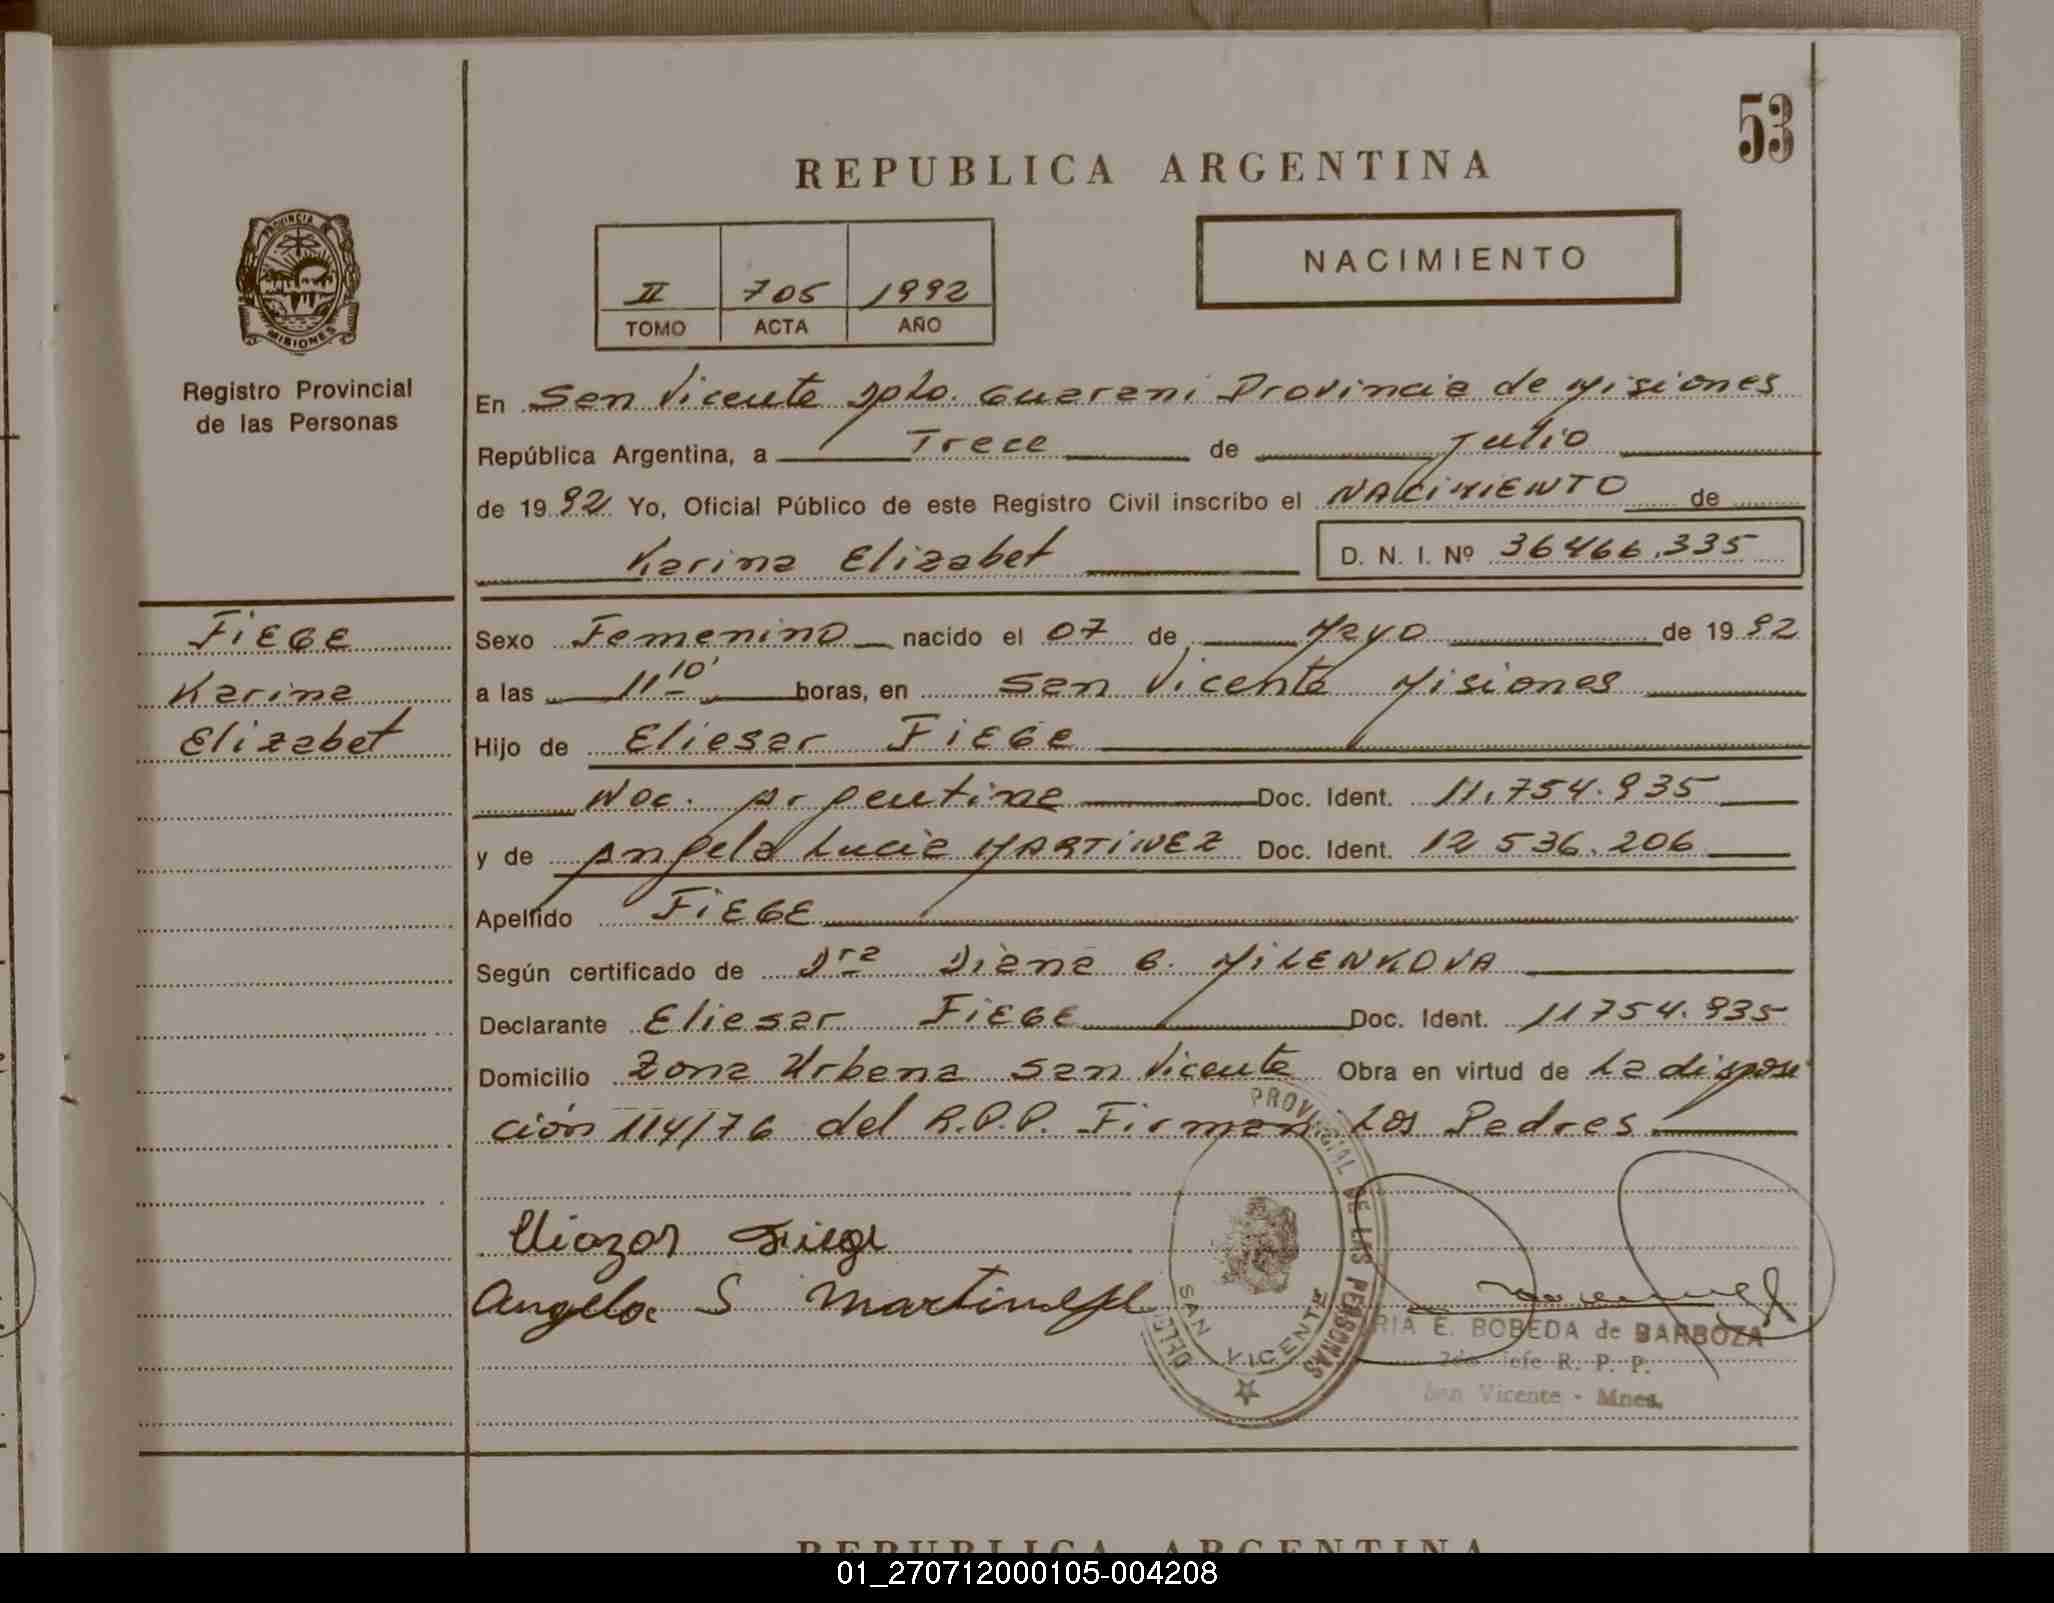 53
REPUBLICA ARGENTINA
PROVINCIA DE
MISIONES
NACIMIENTO
II 705 1992
TOMO ACTA AÑO
Registro Provincial
de las Personas
En San Vicente Dpto. Guarani Provincia de Misiones
República Argentina, a Trece de Julio
de 1992 Yo, Oficial Público de este Registro Civil inscribo el NACIMIENTO de
Karina Elizabet D. N. I. Nº 36466.335
FIEGE
Karina
Elizabet
Sexo Femenino nacido el 07 de Mayo de 1992
a las 11 10' horas, en San Vicente Misiones
Hijo de Eliesar FIEGE
Nac. Argentina Doc. Ident. 11.754.935
y de Angela Lucia MARTINEZ Doc. Ident. 12 536.206
Apellido FIEGE
Según certificado de Dra Diana G. MILENKOVA
Declarante Eliesar FIEGE Doc. Ident. 11754.935
Domicilio Zona Urbana San Vicente Obra en virtud de La disposi
ción 114/76 del R.P.P. Firman Los Padres
Angela S Martinez
PROVINCIAL DE LAS PERSONAS
SAN VICENTE
RIA E. BOBEDA de BARBOZA
2do Jefe R. P. P.
San Vicente - Mnes.
REPUBLICA ARGENTINA
01_270712000105-004208